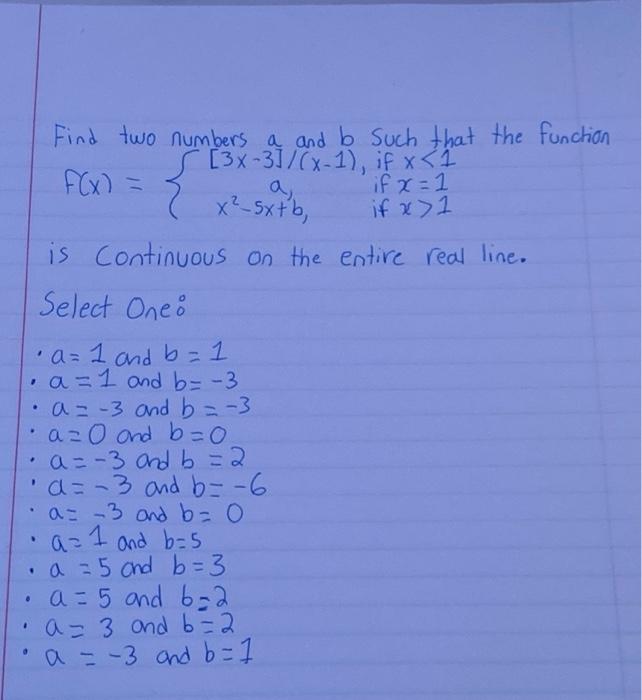 Find two numbers a and b such that the function
[3x-3]/(x-1), if x<1
f(x) = { a, if x=1
x²-5x+b, if x>1
is continuous on the entire real line.
Select One:
• a=1 and b=1
• a=1 and b=-3
• a=-3 and b=-3
• a=0 and b=0
• a=-3 and b=2
• a=-3 and b=-6
• a=-3 and b=0
• a=1 and b=5
• a=5 and b=3
• a=5 and b=2
• a=3 and b=2
• a=-3 and b=1